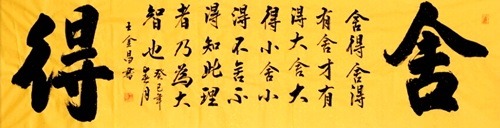 舍
舍得舍得
有舍才有
得大舍大
得小舍小
得不舍不
得知此理
者乃為大
智也
癸巳年
月
王金昌書
得